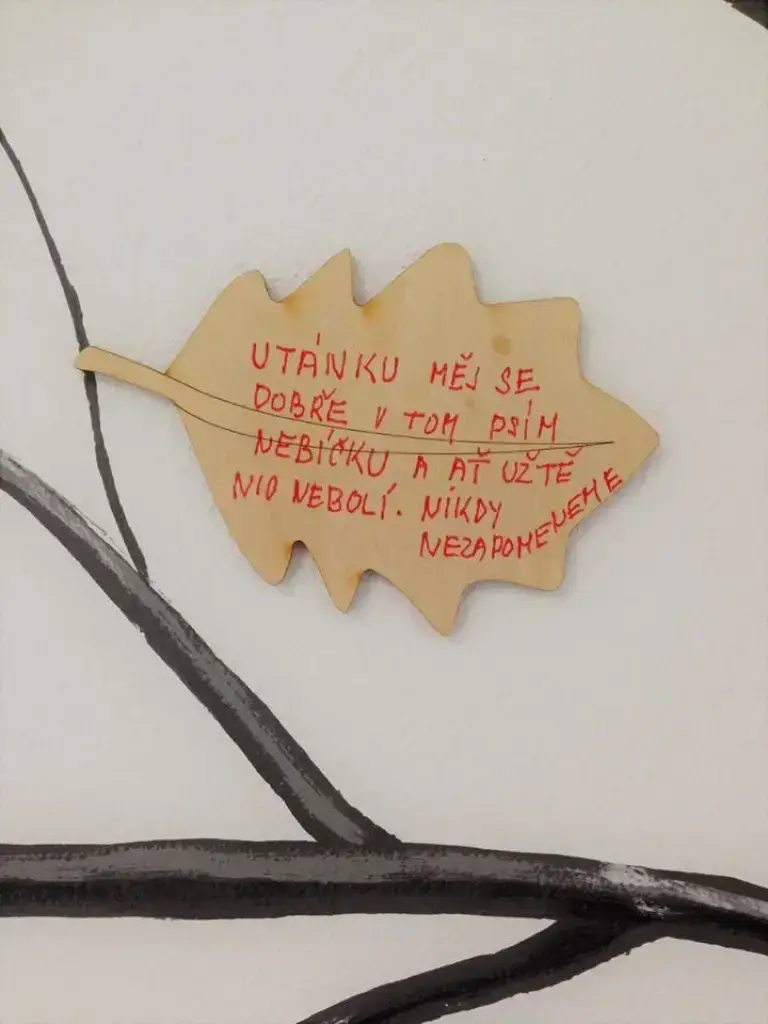 UTÁNKU MĚJ SE
DOBŘE V TOM PSÍM
NEBÍČKU A AŤ UŽ TĚ
NIC NEBOLÍ. NIKDY
NEZAPOMENEME